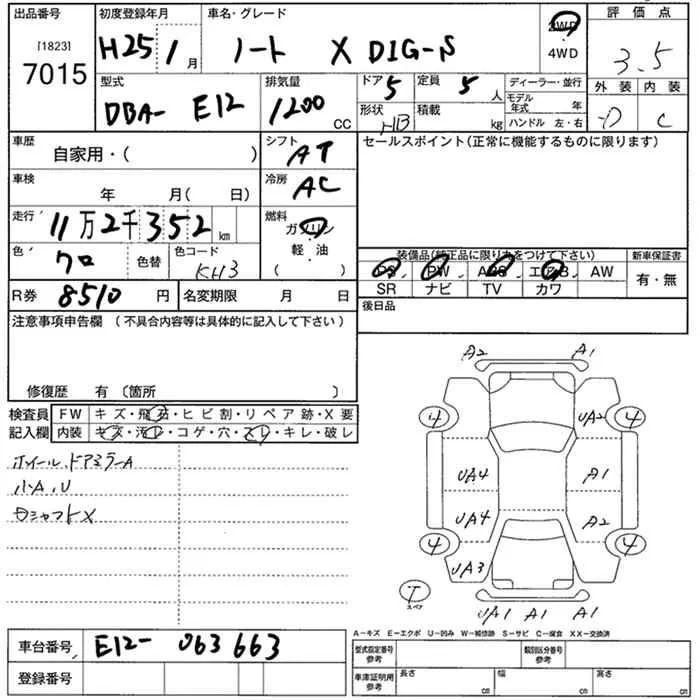 出品番号
[1823]
7015
初度登録年月
H25 1 月
車名・グレード
ノート X DIG-S
2WD
4WD
評価点
3.5
外装 内装
D C
型式
DBA- E12
排気量
1200 CC
ドア 5
定員 5 人
形状 HB
積載 kg
ディーラー・並行
モデル年式 年
ハンドル 左・右
車歴
自家用・( )
シフト
AT
セールスポイント(正常に機能するものに限ります)
車検
年 月( 日)
冷房
AC
走行
11万2千352 km
燃料
ガソリン
・
軽・油
( )
色
クロ
色替
色コード
KH3
装備品(純正品に限り丸をつけて下さい)
PS PW ABS エアB AW
SR ナビ TV カワ
新車保証書
有・無
R券 8510 円
名変期限 月 日
後日品
注意事項申告欄 (不具合内容等は具体的に記入して下さい)
修復歴 有 (箇所 )
検査員
記入欄
FW キズ・飛石・ヒビ割・リペア跡・X要
内装 キズ・汚レ・コゲ・穴・スレ・キレ・破レ
ホイール、ドアミラーA
小A、U
A2 A1
4 UA2 4
UA4 A1
UA4 A2
4 4
UA3
T
スペア
UA1 A1 A1
A-キズ E-エクボ U-凹み W-補修跡 S-サビ C-腐食 XX-交換済
車台番号 E12- 063663
登録番号
型式指定番号
参考
類別区分番号
参考
車庫証明用
参考
長さ cm
幅 cm
高さ cm